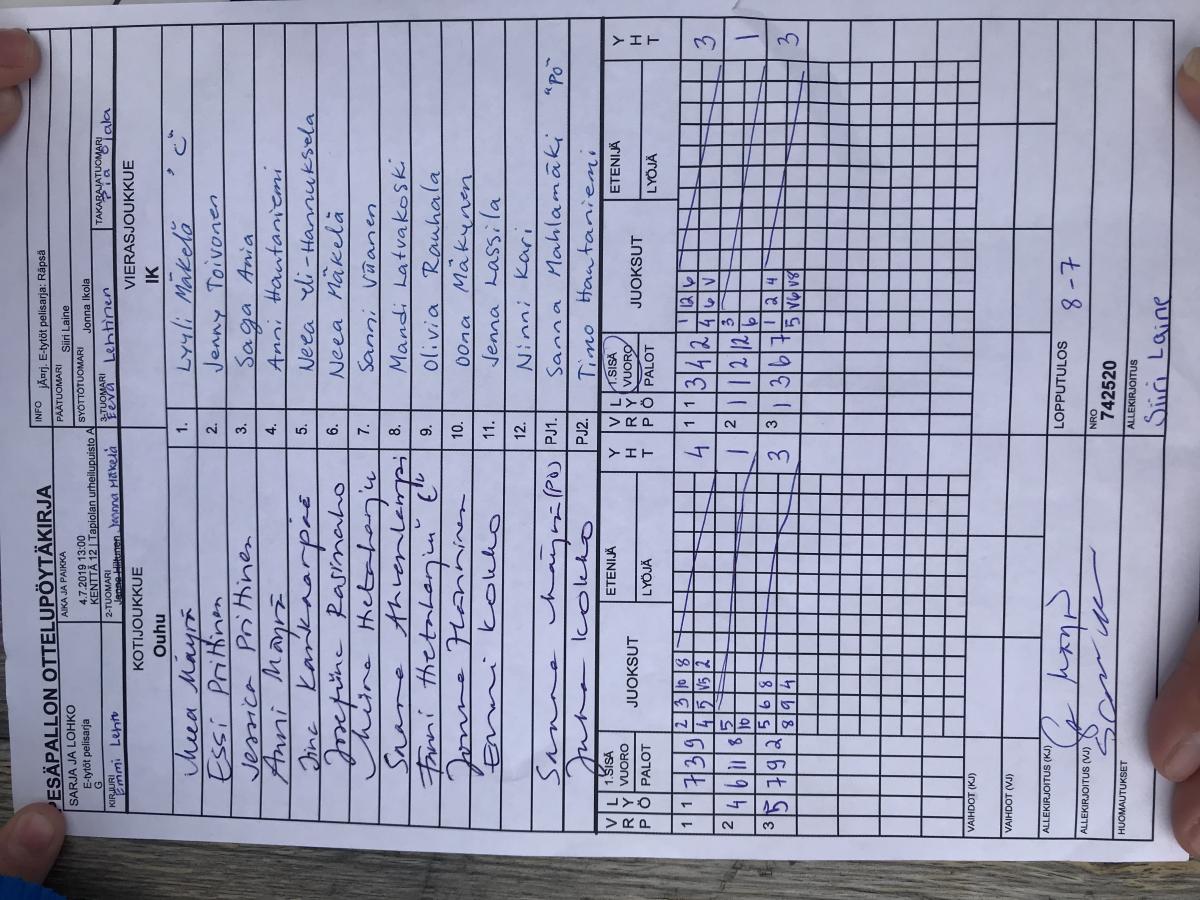 PESÄPALLON OTTELUPÖYTÄKIRJA
INFO jÃ¤rj. E-tytöt pelisarja: Räpsä
SARJA JA LOHKO
E-tytöt pelisarja
G
AIKA JA PAIKKA
4.7.2019 13:00
KENTTÄ 12 | Tapiolan urheilupuisto A
PÄÄTUOMARI Siiri Laine
SYÖTTÖTUOMARI Jonna Ikola
KIRJURI
Emmi Lehto
2-TUOMARI
Janne Hiltunen Minna Mäkelä
3-TUOMARI
Eeva Lehtinen
TAKARAJATUOMARI
Pia Ojala
KOTIJOUKKUE
Ouhu
VIERASJOUKKUE
IK
Meea Mäyrä 1. Lyyli Mäkelä "C"
Essi Prittinen 2. Jenny Toivonen
Jessica Prittinen 3. Saga Ania
Anni Mäyrä 4. Anni Hautaniemi
Iina Kankaanpää 5. Neea Yli-Hannuksela
Josefiina Rasinaho 6. Neea Mäkelä
Miina Hietaharju 7. Sanni Viianen
Saana Ahvenlampi 8. Mandi Latvakoski
Fanni Hietaharju C" 9. Olivia Rauhala
Jonna Hänninen 10. Oona Mäkynen
Emmi Kokko 11. Jenna Lassila
12. Ninni Kari
Sanna Mäyrä (PÖ) PJ1. Sanna Mahlamäki "PÖ"
Juha Kokko PJ2. Timo Hautaniemi
VRP LYÖ 1.SISÄVUORO PALOT JUOKSUT ETENIJÄ LYÖJÄ YHT VRP LYÖ 1.SISÄVUORO PALOT JUOKSUT ETENIJÄ LYÖJÄ YHT
1 1 7 3 9 2 3 10 8 4 1 1 3 4 2 1 12 6 3
4 5 V5 2 4 6 V
2 4 6 11 8 5 1 2 1 1 2 12 3 1
10 6
3 5 7 9 2 5 6 8 3 3 1 3 6 7 1 2 4 3
8 9 4 5 V6 V8
VAIHDOT (KJ)
VAIHDOT (VJ)
ALLEKIRJOITUS (KJ)
LOPPUTULOS 8-7
ALLEKIRJOITUS (VJ)
NRO
742520
HUOMAUTUKSET
ALLEKIRJOITUS
Siiri Laine